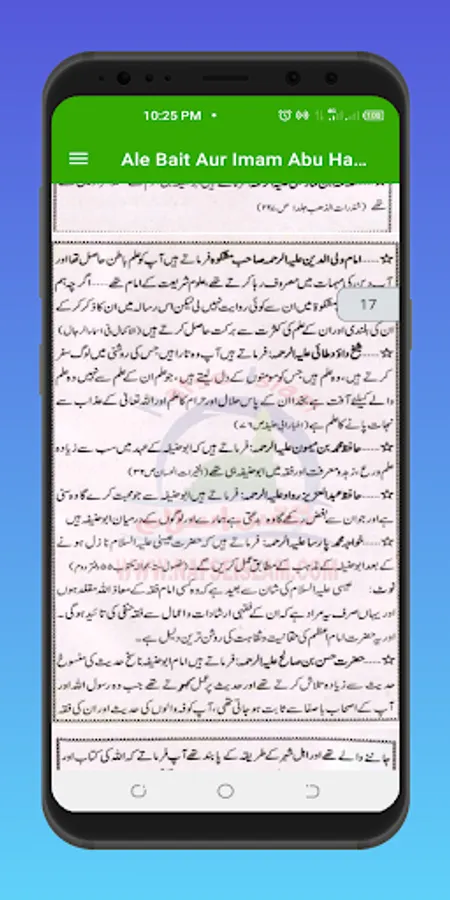 10:25 PM
Ale Bait Aur Imam Abu Ha...
تھے (شذرات الذھب جلد۱ ص۲۲۸)
☆.....امام ولی الدین علیہ الرحمہ صاحب مشکوٰۃ فرماتے ہیں آپ کو علم باطن حاصل تھا اور
آپ دین کی مہمات میں مصروف رہا کرتے تھے، علوم شریعت کے امام تھے.....اگرچہ ہم
17
مشکوٰۃ میں ان سے کوئی روایت نہیں لی لیکن اس رسالہ میں ان کا ذکر کر کے
ان کی بلندی اور ان کے علم کی کثرت سے برکت حاصل کرتے ہیں (الاکمال فی اسماء الرجال)
☆.....شیخ داؤد طائی علیہ الرحمہ: فرماتے ہیں آپ وہ تارا ہیں جس کی روشنی میں لوگ سفر
کرتے ہیں، وہ علم ہیں جس کو مومنوں کے دل لیتے ہیں، جو علم ان کے علم سے نہیں وہ علم
والے کیلئے آفت ہے بخدا ان کے پاس حلال اور حرام کا علم اور اللہ تعالیٰ کے عذاب سے
نجات پانے کا علم ہے، (اخبار ابی حنیفہ ص۷۶)
☆.....حافظ محمد بن میمون علیہ الرحمہ: فرماتے ہیں کہ ابوحنیفہ کے عہد میں سب سے زیادہ
علم و ورع، زہد و معرفت اور فقہ میں ابوحنیفہ ہی تھے (الخیرات الحسان ص۳۶)
☆.....حافظ عبدالعزیز رواد علیہ الرحمہ: فرماتے ہیں ابوحنیفہ سے جو محبت کرے گا وہ سنی
ہے اور جو ان سے بغض رکھے گا وہ بدعتی ہے ہمارے اور لوگوں کے درمیان ابوحنیفہ ہیں
☆.....خواجہ محمد پارسا علیہ الرحمہ: فرماتے ہیں کہ حضرت عیسیٰ علیہ السلام نازل ہونے
کے بعد ابوحنیفہ کے مذہب کے مطابق عمل کریں گے۔
WWW.NAFSEISLAM.COM
نوٹ: عیسیٰ علیہ السلام کی شان سے بعید ہے کہ وہ کسی امام فقہ کے معاذ اللہ مقلد ہوں
اور یہاں صرف یہ مراد ہے کہ ان کے فقہی ارشادات و اعمال سے فقہ حنفی کی تائید ہو گی۔
اور یہ حضرت امام اعظم کی حقانیت و ثقاہت کی روشن ترین دلیل ہے۔
☆.....حضرت حسن بن صالح علیہ الرحمہ: فرماتے ہیں امام ابوحنیفہ ناسخ حدیث کی منسوخ
حدیث سے زیادہ تلاش کرتے تھے اور حدیث پر عمل کرتے تھے جب وہ رسول اللہ اور
آپ کے اصحاب باصفا سے ثابت ہو جاتی تھی، آپ کوفہ والوں کی حدیث اور ان کی فقہ
جاننے والے تھے اور اہل شہر کے طریقہ کے پابند تھے آپ فرماتے کہ اللہ کی کتاب اور